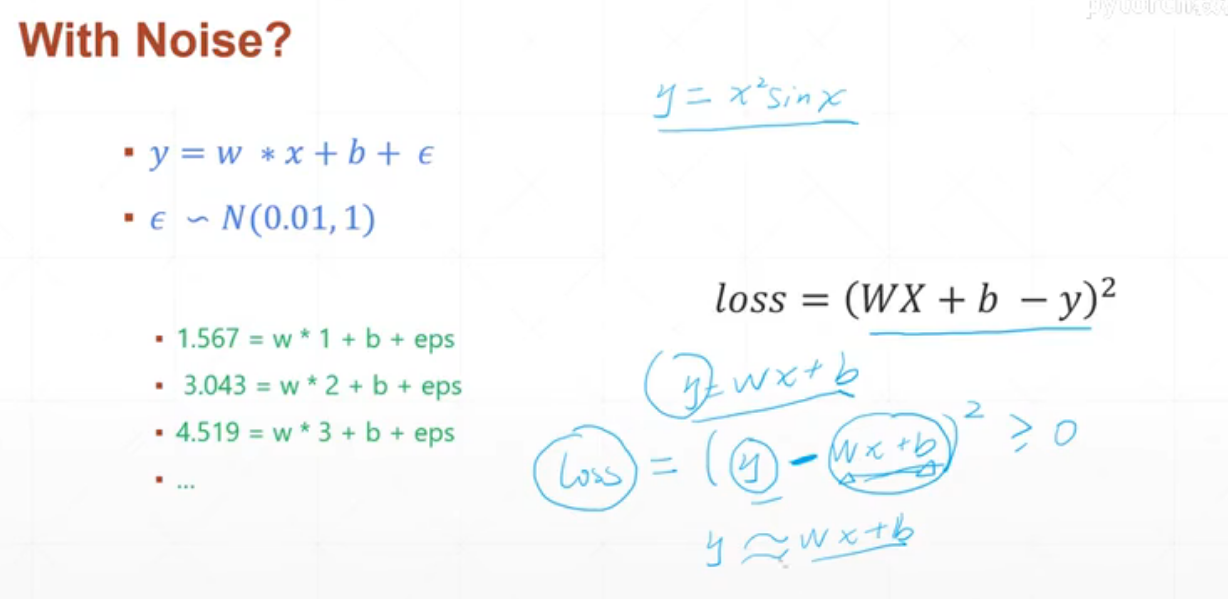 With Noise?
y = x² sin x
▪ y = w * x + b + ϵ
▪ ϵ ∽ N(0.01, 1)
loss = (WX + b − y)²
▪ 1.567 = w * 1 + b + eps
▪ 3.043 = w * 2 + b + eps
▪ 4.519 = w * 3 + b + eps
▪ ...
y = wx + b
loss = (y - wx + b)² ≥ 0
y ≈ wx + b